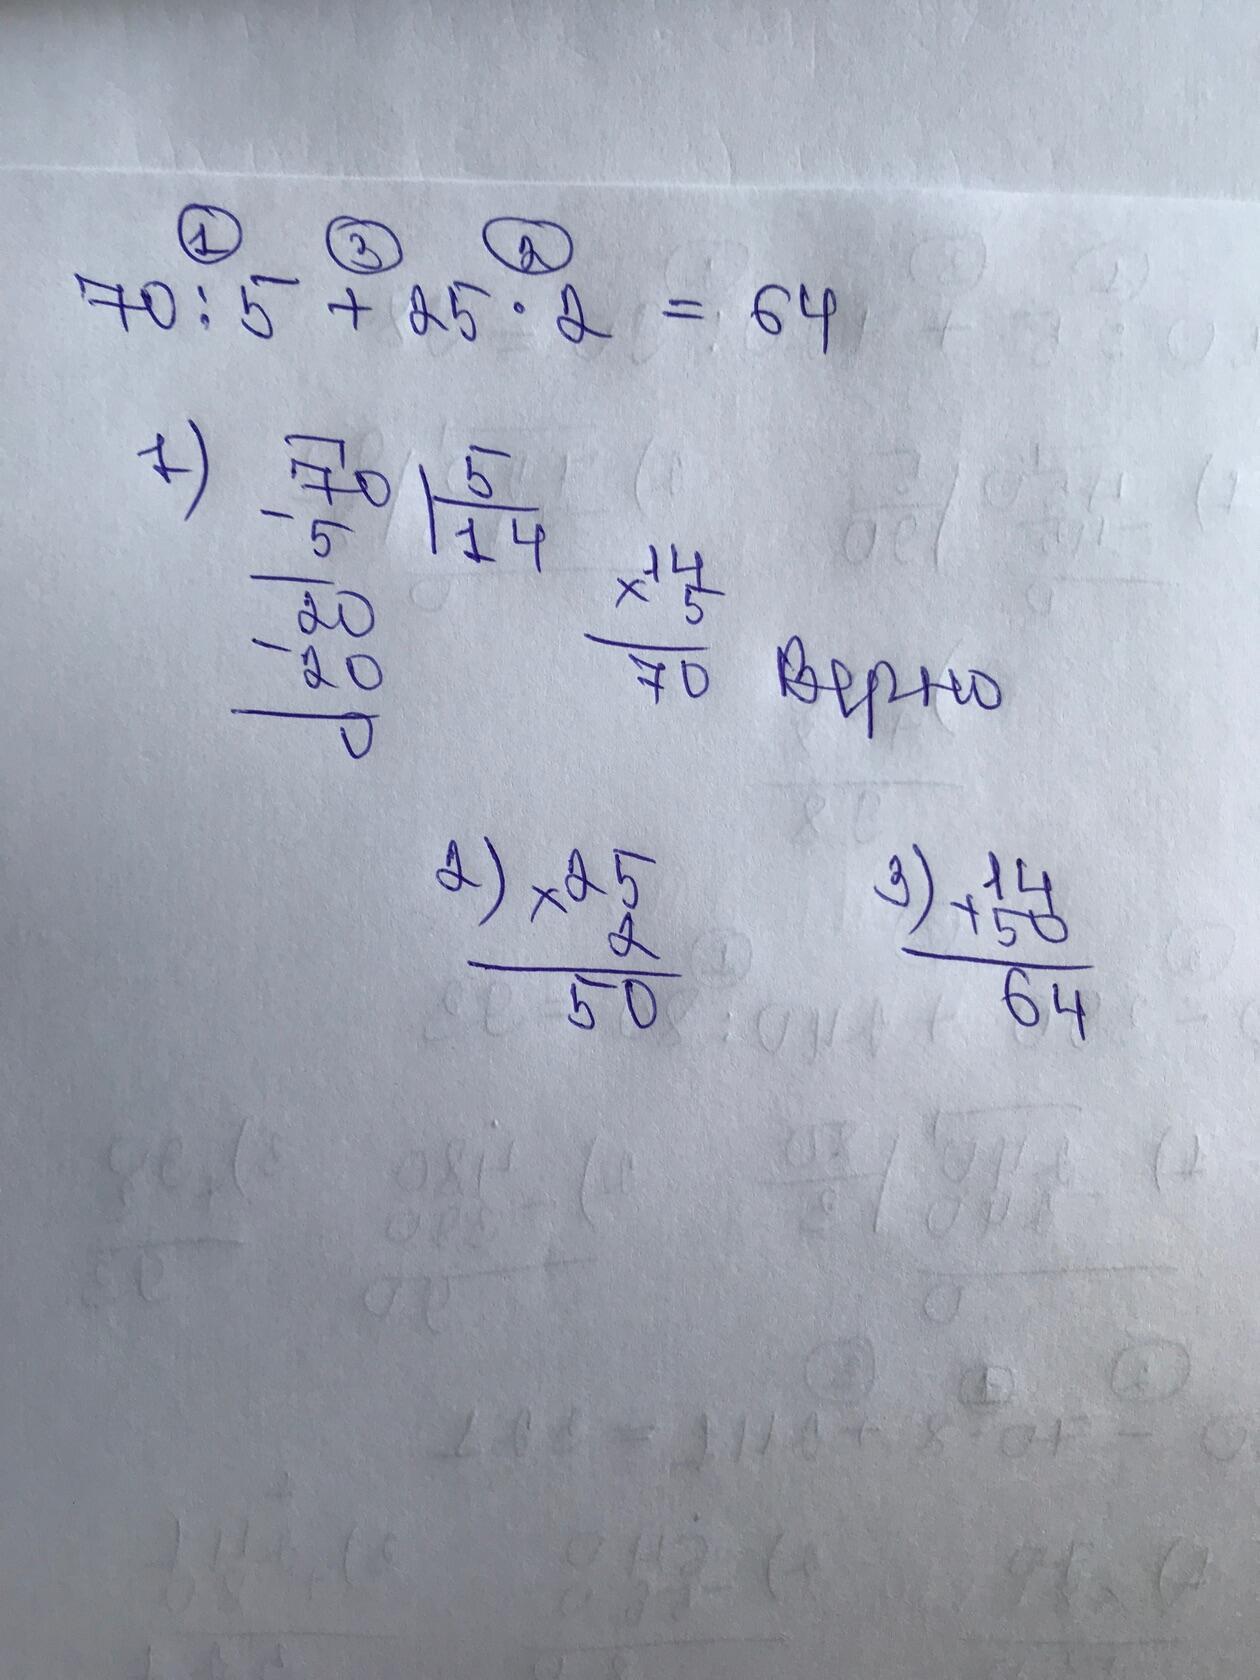 ① ③ ②
70 : 5 + 25 · 2 = 64
1) 70 | 5
- 5 14
20
- 20
0
× 14
5
70 Верно
2) × 25
2
50
3) + 14
50
64